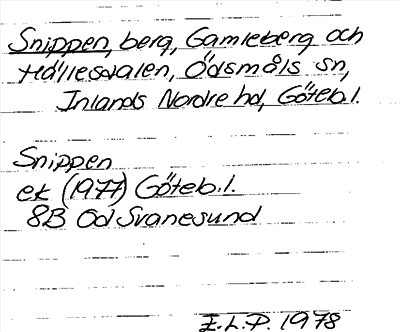 Snippen, berg, Gamleberg och
Hällesdalen, Ödsmåls sn,
Inlands Nordre hd, Göteb.l.
Snippen
ek (1977) Göteb.l.
8B Od Svanesund
E.L.P. 1978